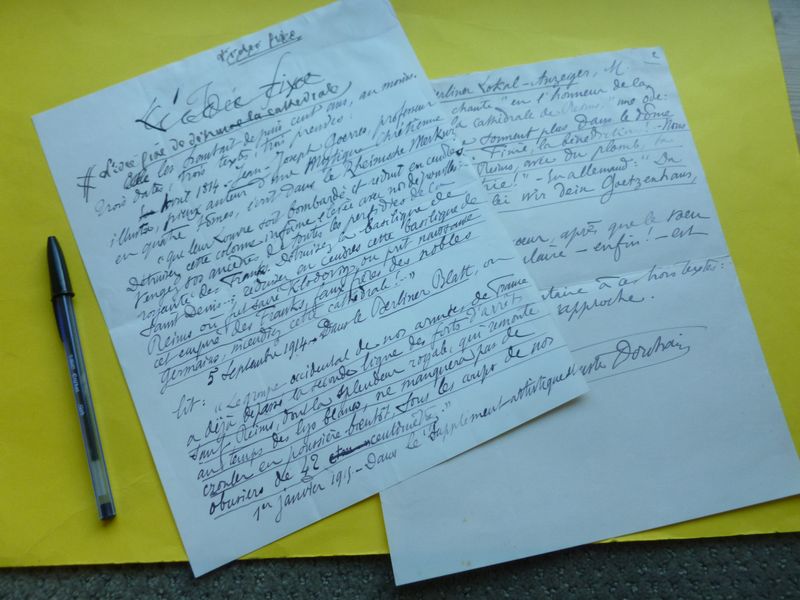 L'Idée fixe
L'Idée fixe
# L'idée fixe de détruire la cathédrale
Elle les hantait depuis cent ans, au moins.
Trois dates; trois textes; trois preuves:
Avril 1814. - Jean-Joseph Goerres, professeur
illustre, pieux auteur d'une Mystique Chrétienne
en quatre tomes, écrit dans le Rheinische Merkur:
que leur Louvre soit bombardé et réduit en cendres
Détruisez cette colonne infâme
Vengez nos ancêtres de toutes les perfidies de la
royauté des Francs. Détruisez la basilique de
Saint Denis; réduisez en cendres cette basilique de
Reims où fut sacré Klodovig, où prit naissance
cet empire des Francs, faux frères des nobles
Germains; incendiez cette cathédrale!"
5 Septembre 1914. - Dans le Berliner Blatt, on
lit: "Le groupe occidental de nos armées de France
a déjà dépassé la seconde ligne des forts d'arrêt
sauf Reims, dont la splendeur royale, qui remonte
au temps des lys blancs, ne manquera pas de
crouler en poussière bientôt sous les coups de nos
obusiers de 42
1er janvier 1915. - Dans le Supplément artistique
2
Berliner Lokal-Anzeiger, M.
chante "en l'honneur de la
cathédrale de Reims" une ode:
sonnent plus dans le dôme
Finie la bénédiction! - Nous
Reims, avec du plomb, ta
En allemand: "Du
wir dein Goetzenhaus,
cœur, après que le vœu
- enfin! - est
à ces trois textes:
approche.
Auguste Dorchain